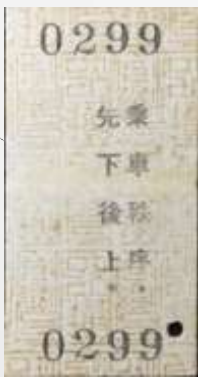 0299
乘車秩序.
先下後上.
0299